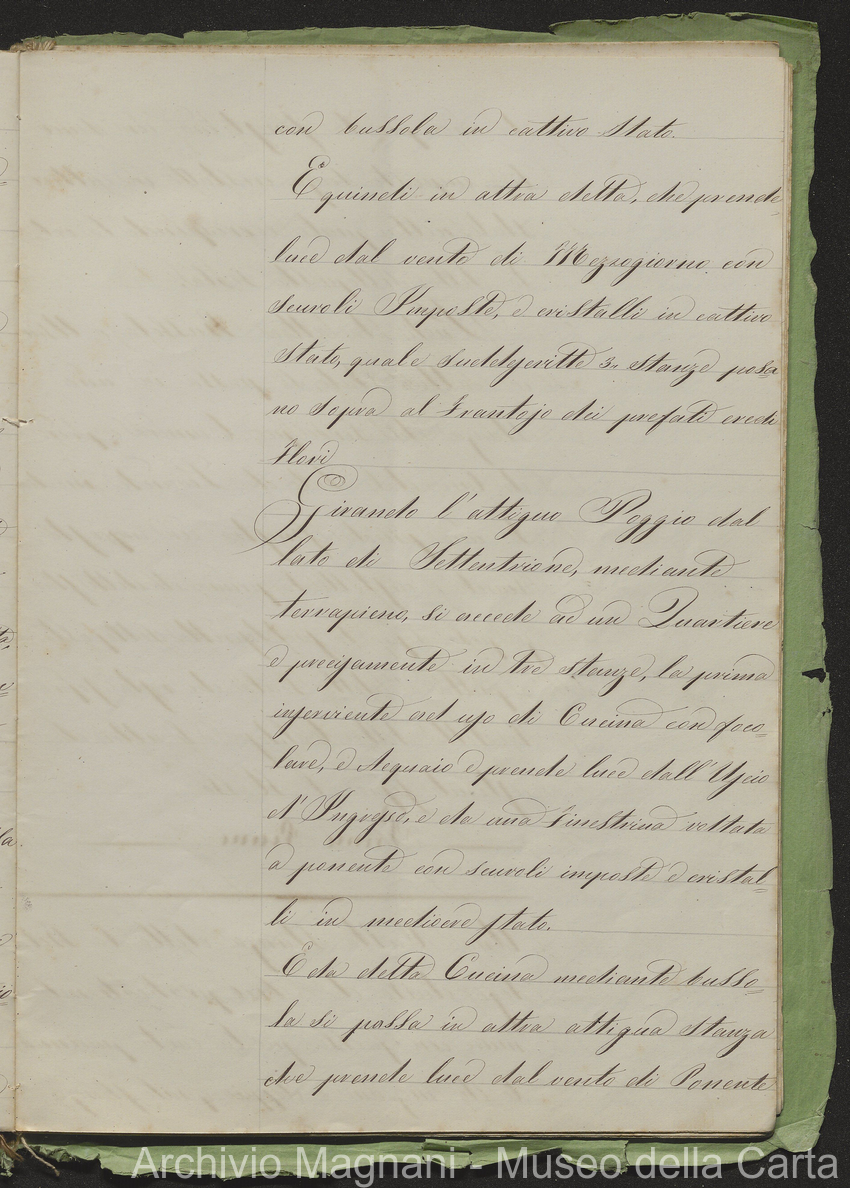 con bussola in cattivo Stato.
E quindi in altra detta, che prende
luce dal vento di Mezzogiorno con
Scuroli Imposte, e cristalli in cattivo
Stato, quale suddescritte 3. Stanze posa
no sopra al Frantojo dei prefati eredi
Flori
Girando l'attiguo Poggio dal
lato di Settentrione, mediante
terrapieno, si accede ad un Quartiere
e precisamente in tre stanze, la prima
inserviente ad uso di Cucina con foco=
lare, e Acquaio e prende luce dall'Uscio
d'Ingresso, e da una Finestrina voltata
a ponente con scuroli imposte e cristal=
li in mediocre stato.
E da detta Cucina mediante busso=
la si passa in altra attigua stanza
che prende luce dal vento di Ponente
Archivio Magnani - Museo della Carta